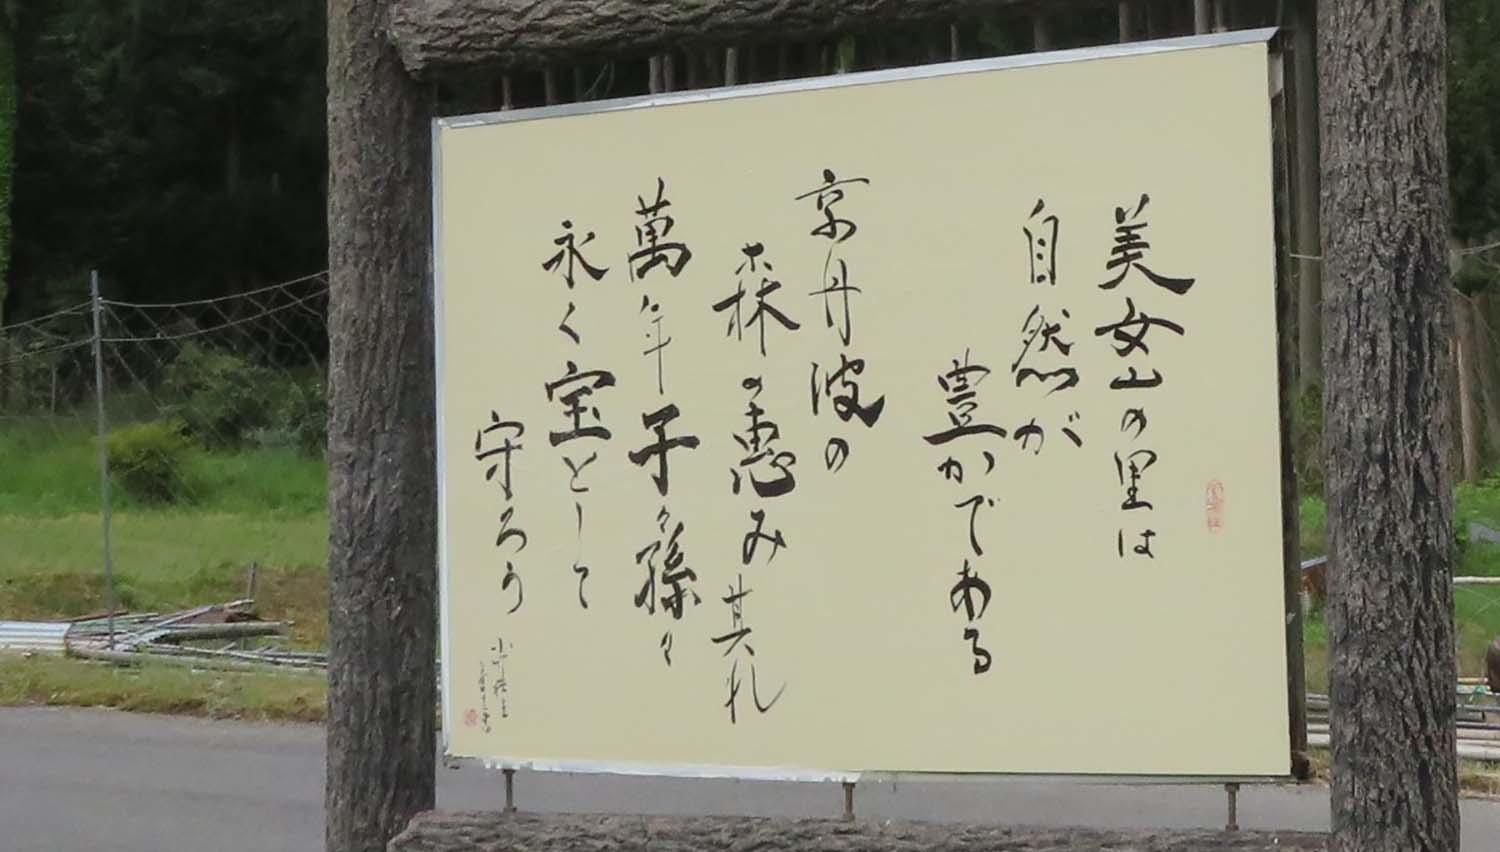 美女山の里は
自然が
豊かである
京丹波の
森の恵み其れ
萬年子々孫々
永く宝として
守ろう